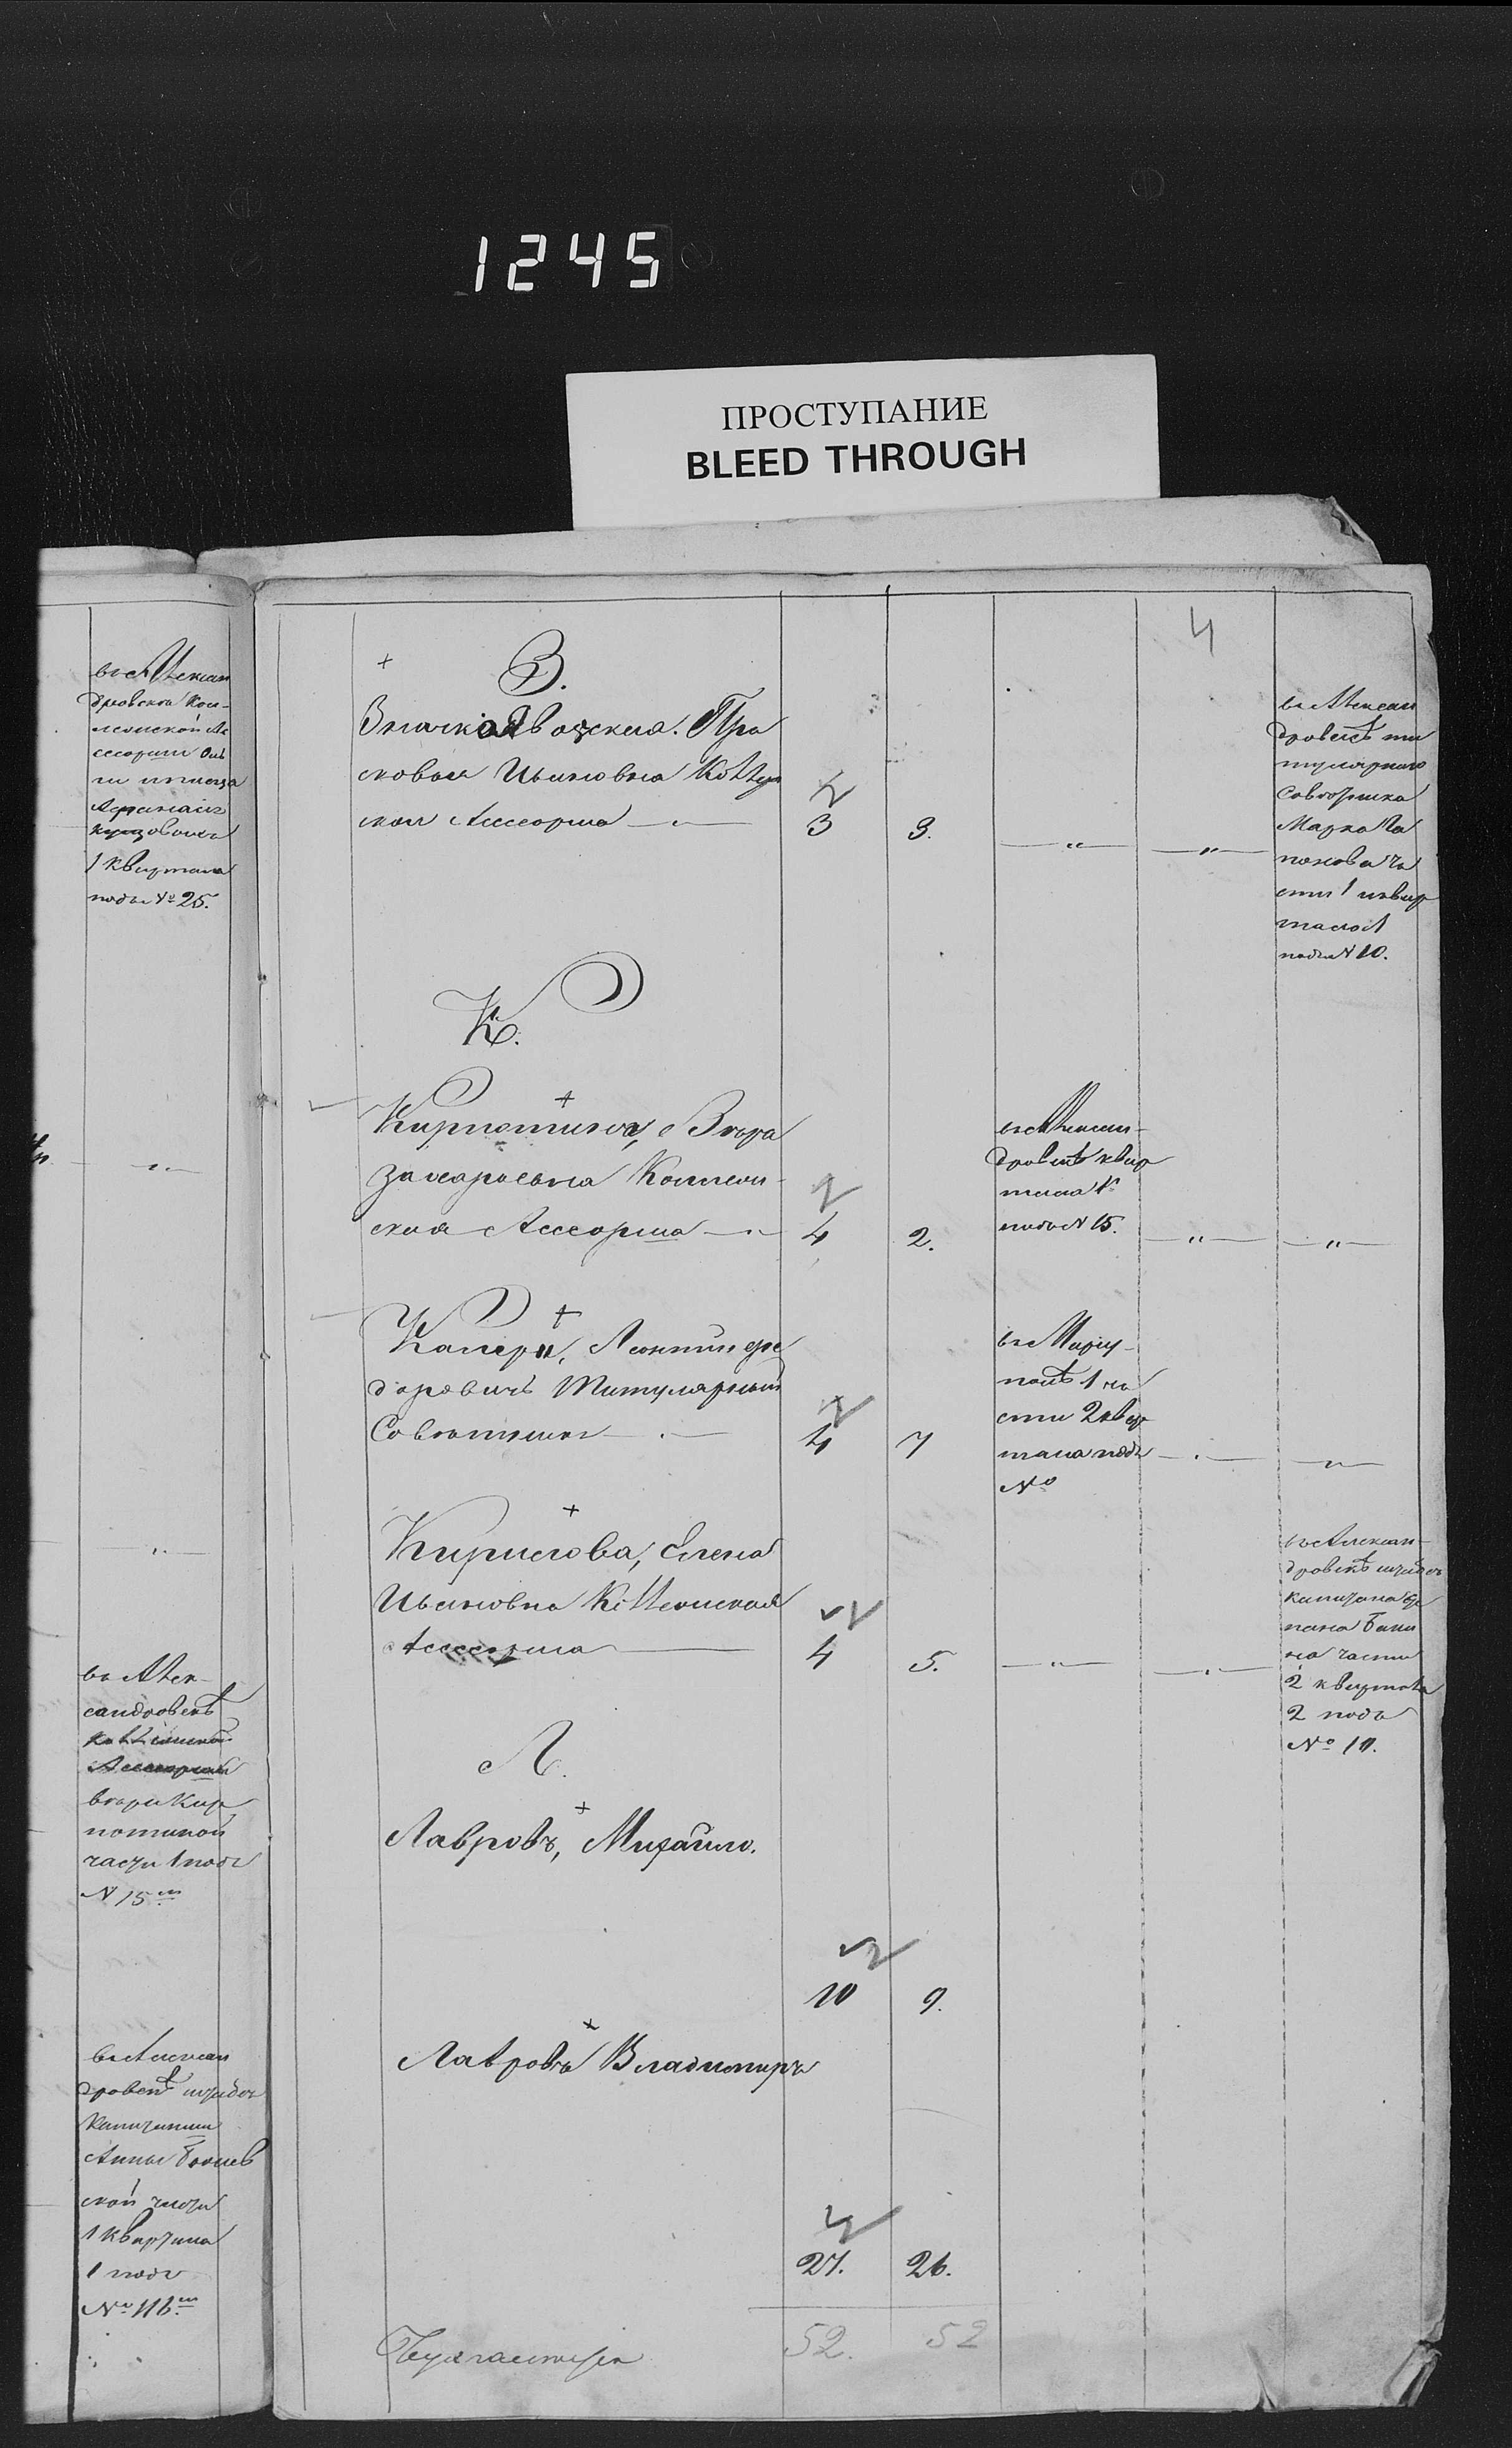 1245
ПРОСТУПАНИЕ
BLEED THROUGH
дровской Кол-
лежской Ас
сессорши
1 квартала
подъ № 25.
въ Алек-
сандровскѣ
Коллежской
Ассесорши
Вѣры Кир
потиной
части 1 подъ
N 15
въ Алексан
дровскѣ штабсъ
Капитанши
Анны
ской части
1 квартала
1 подъ
№ 116.
4
З.
Пра
сковья Ивановна Коллеж
ская Ассесорша
3 3.
въ Алексан
дровскѣ ти
тулярнаго
Совѣтника
Марка
ча
сти 1 квар
тала 1
подъ N 10.
К.
Кирпотина, Вѣра
Захарьевна Коллеж-
ская Ассесорша
4 2.
въ Алексан-
дровскѣ квар
тала 1
подъ N 15.
Леонтій Фе
доровичъ Титулярный
Совѣтникъ
4 7
въ Мариу-
полѣ 1 ча
сти 2 квар
тала подъ
№
Кирилова, Елена
Ивановна Коллежская
Ассесорша
4 5.
въ Алексан-
дровскѣ штабсъ
капитана
на части
2 квартала
2 подъ
№ 10.
Л.
Лавровъ, Михаилъ.
10 9.
Лавровъ Владимиръ
27. 26.
52. 52